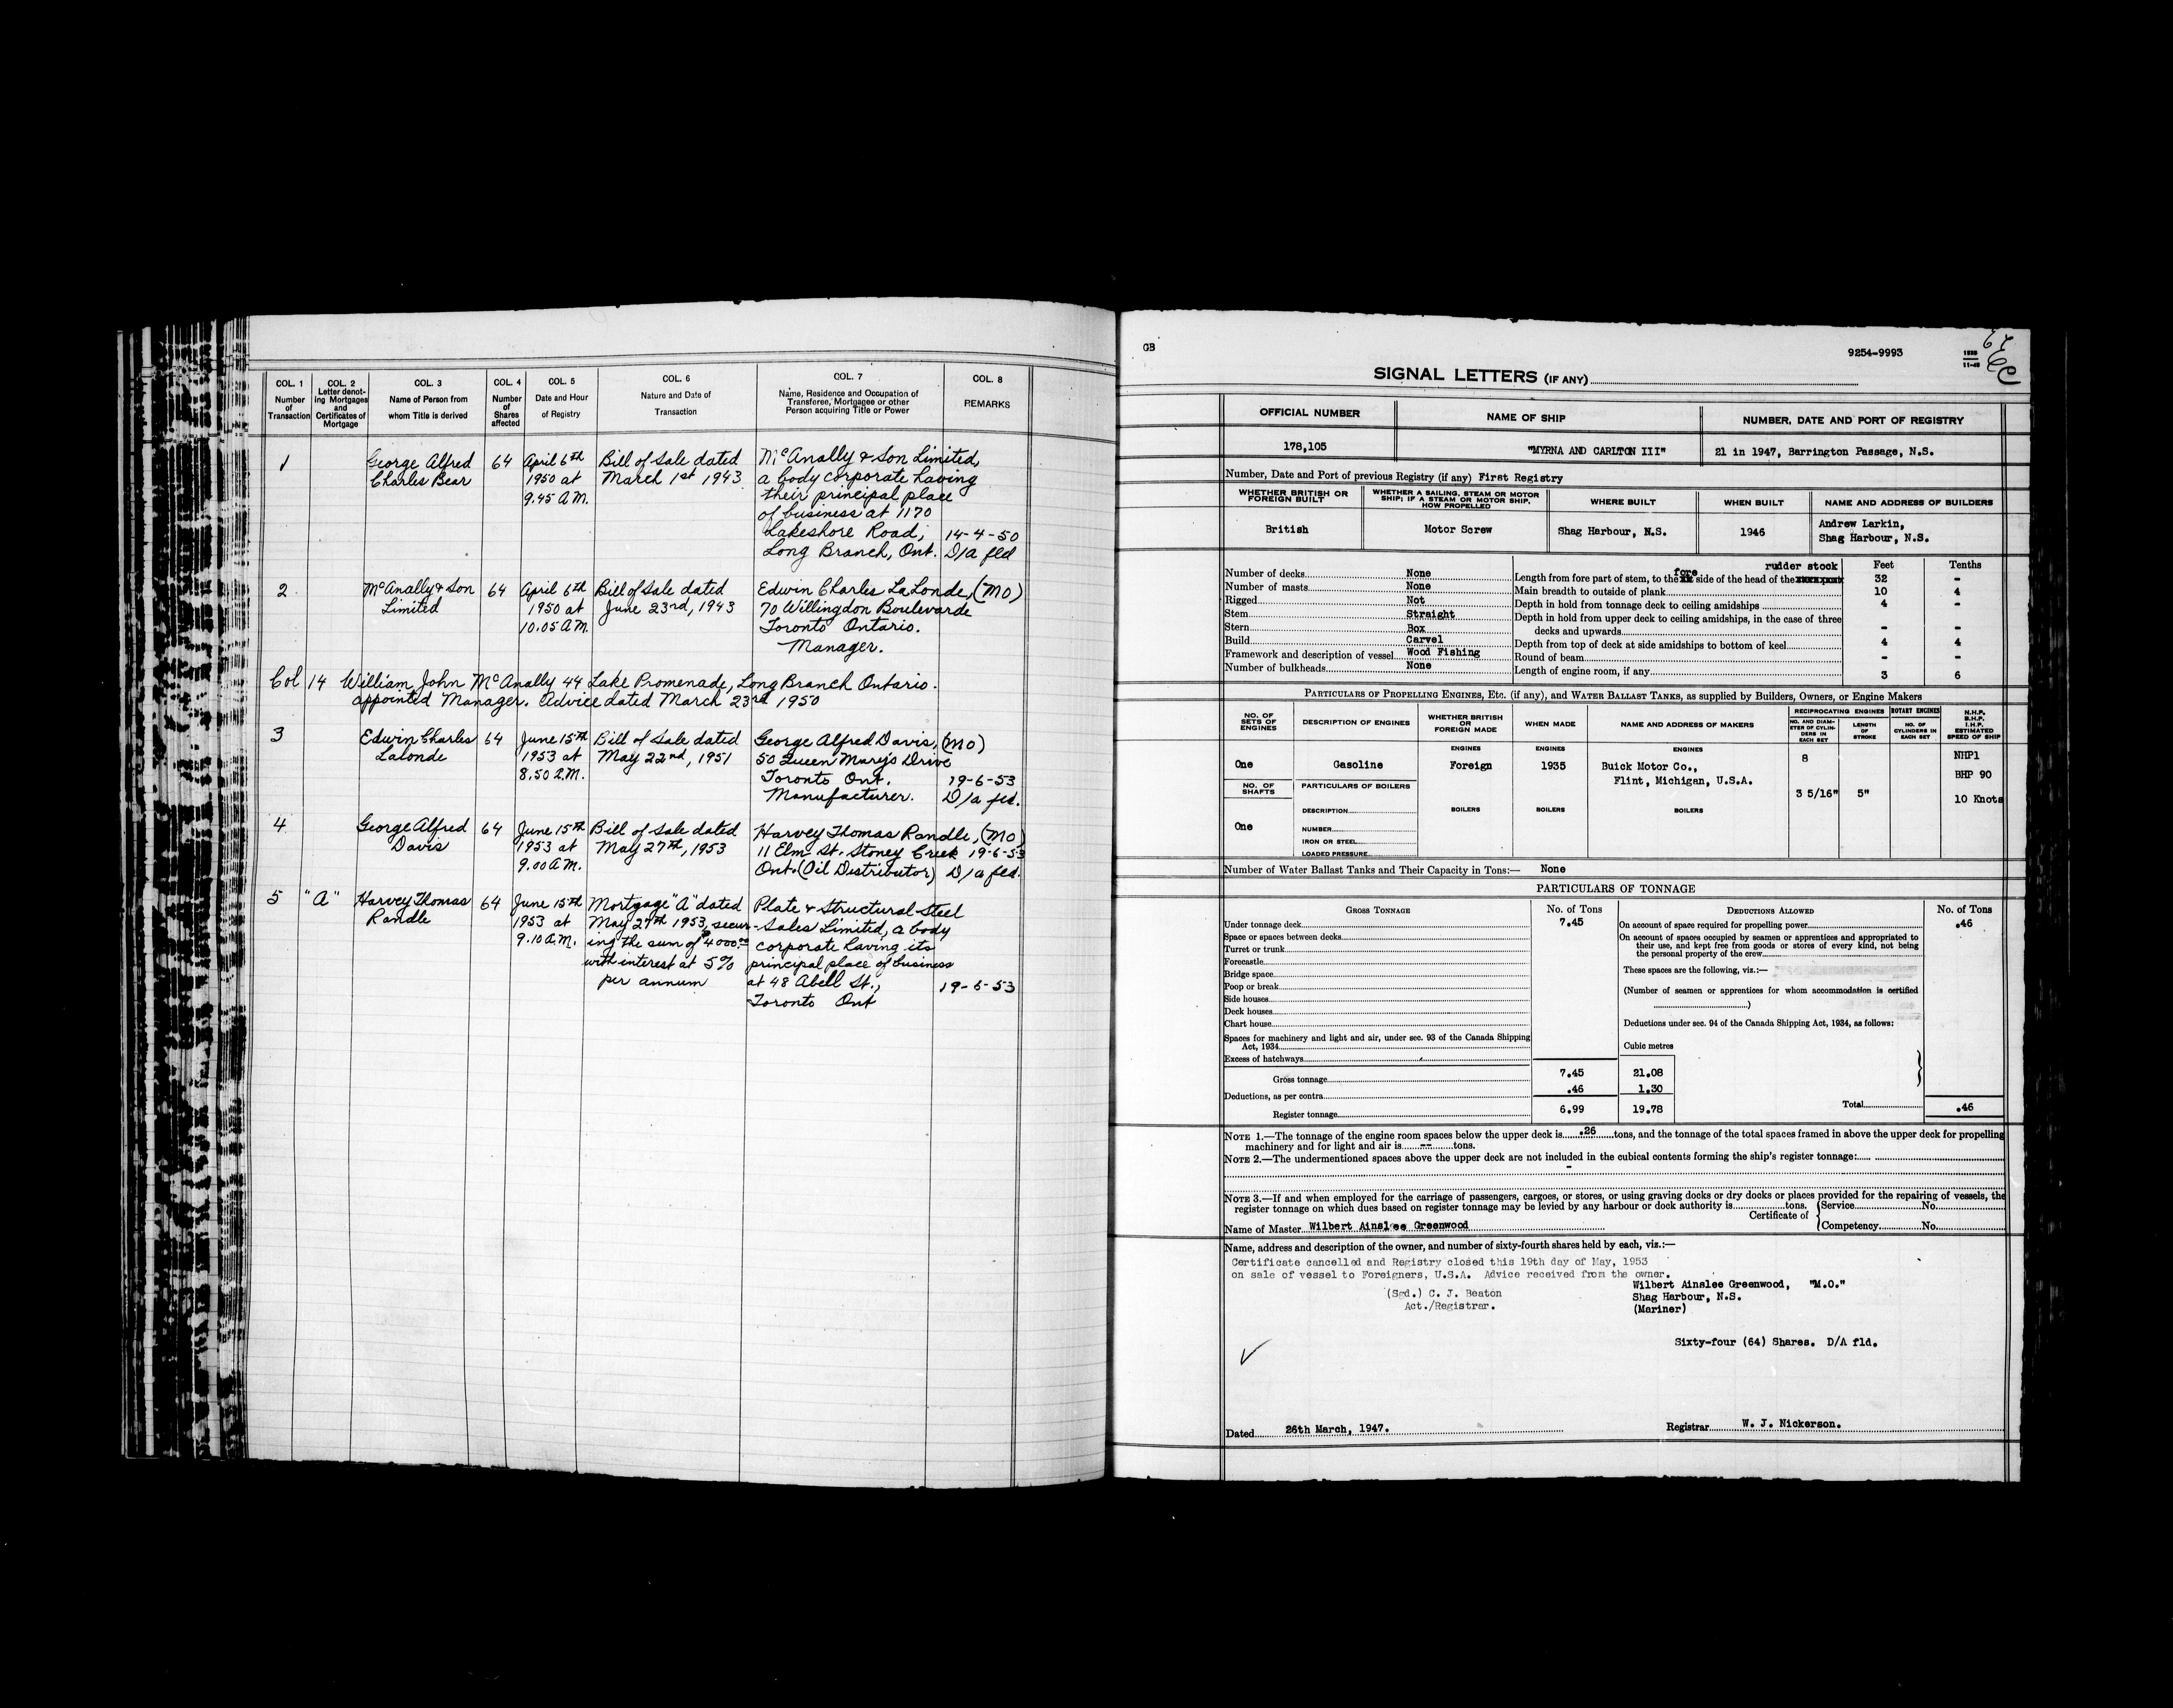 COL. 1 COL. 2 COL. 3 COL. 4 COL. 5 COL. 6 COL. 7 COL. 8
Number of Transaction
Letter denot-
ing Mortgages
and
Certificates of
Mortgage
Name of Person from
whom Title is derived
Number
of
Shares
affected
Date and Hour
of Registry
Nature and Date of
Transaction
Name, Residence and Occupation of
Transferee, Mortgagee or other
Person acquiring Title or Power
REMARKS
1 George Alfred 64 April 6th Bill of Sale dated McAnally & Son Limited,
Charles Bear 1950 at March 1st 1943 a body corporate having
9.45 A.M. their principal place
of business at 1170
Lakeshore Road, 14-4-50
Long Branch, Ont. D/a fld
2 McAnally & Son 64 April 6th Bill of Sale dated Edwin Charles LaLonde, (MO)
Limited 1950 at June 23rd, 1943 70 Willingdon Boulevarde
10.05 A.M. Toronto Ontario.
Manager.
Col 14 William John McAnally 44 Lake Promenade, Long Branch Ontario.
appointed Manager. Advice dated March 23rd 1950
3 Edwin Charles 64 June 15th Bill of Sale dated George Alfred Davis, (MO)
Lalonde 1953 at May 22nd, 1951 50 Queen Mary's Drive
8.50 A.M. Toronto Ont. 19-6-53
Manufacturer. D/a fld.
4 George Alfred 64 June 15th Bill of Sale dated Harvey Thomas Randle, (MO)
Davis 1953 at May 27th, 1953 11 Elm St. Stoney Creek 19-6-53
9.00 A.M. Ont. (Oil Distributor) D/a fld.
5 "A" Harvey Thomas 64 June 15th Mortgage "A" dated Plate & Structural Steel
Randle 1953 at May 27th 1953, secur- Sales Limited, a body
9.10 A.M. ing the sum of $4000.00 corporate having its
with interest at 5% principal place of business
per annum at 48 Abell St., 19-6-53
Toronto Ont
GB 9254-9993
1938
11-45
SIGNAL LETTERS (IF ANY)
OFFICIAL NUMBER NAME OF SHIP NUMBER, DATE AND PORT OF REGISTRY
178,105 "MYRNA AND CARLTON III" 21 in 1947, Barrington Passage, N.S.
Number, Date and Port of previous Registry (if any) First Registry
WHETHER BRITISH OR
FOREIGN BUILT
WHETHER A SAILING, STEAM OR MOTOR
SHIP; IF A STEAM OR MOTOR SHIP,
HOW PROPELLED
WHERE BUILT WHEN BUILT NAME AND ADDRESS OF BUILDERS
British Motor Screw Shag Harbour, N.S. 1946 Andrew Larkin,
Shag Harbour, N.S.
Number of decks None
Number of masts None
Rigged Not
Stem Straight
Stern Box
Build Carvel
Framework and description of vessel Wood Fishing
Number of bulkheads None
Feet Tenths
fore rudder stock
Length from fore part of stem, to the side of the head of the 32 -
Main breadth to outside of plank 10 4
Depth in hold from tonnage deck to ceiling amidships 4 -
Depth in hold from upper deck to ceiling amidships, in the case of three
decks and upwards - -
Depth from top of deck at side amidships to bottom of keel 4 4
Round of beam - -
Length of engine room, if any 3 6
PARTICULARS OF PROPELLING ENGINES, ETC. (if any), and WATER BALLAST TANKS, as supplied by Builders, Owners, or Engine Makers
NO. OF
SETS OF
ENGINES
DESCRIPTION OF ENGINES
WHETHER BRITISH
OR
FOREIGN MADE
WHEN MADE
NAME AND ADDRESS OF MAKERS
RECIPROCATING ENGINES ROTARY ENGINES
NO. AND DIAM-
ETER OF CYLIN-
DERS IN
EACH SET
LENGTH
OF
STROKE
NO. OF
CYLINDERS IN
EACH SET
N.H.P.
B.H.P.
I.H.P.
ESTIMATED
SPEED OF SHIP
ENGINES ENGINES ENGINES
One Gasoline Foreign 1935 Buick Motor Co., 8 NHP1
Flint, Michigan, U.S.A. BHP 90
3 5/16" 5" 10 Knots
NO. OF
SHAFTS
PARTICULARS OF BOILERS
DESCRIPTION BOILERS BOILERS BOILERS
One NUMBER
IRON OR STEEL
LOADED PRESSURE
Number of Water Ballast Tanks and Their Capacity in Tons:— None
PARTICULARS OF TONNAGE
GROSS TONNAGE No. of Tons DEDUCTIONS ALLOWED No. of Tons
Under tonnage deck 7.45
Space or spaces between decks
Turret or trunk
Forecastle
Bridge space
Poop or break
Side houses
Deck houses
Chart house
Spaces for machinery and light and air, under sec. 93 of the Canada Shipping
Act, 1934
Excess of hatchways
Gross tonnage 7.45 21.08
Deductions, as per contra .46 1.30
Register tonnage 6.99 19.78
On account of space required for propelling power .46
On account of spaces occupied by seamen or apprentices and appropriated to
their use, and kept free from goods or stores of every kind, not being
the personal property of the crew
These spaces are the following, viz.:—
(Number of seamen or apprentices for whom accommodation is certified
)
Deductions under sec. 94 of the Canada Shipping Act, 1934, as follows:
Cubic metres
Total .46
NOTE 1.—The tonnage of the engine room spaces below the upper deck is .26 tons, and the tonnage of the total spaces framed in above the upper deck for propelling
machinery and for light and air is -- tons.
NOTE 2.—The undermentioned spaces above the upper deck are not included in the cubical contents forming the ship's register tonnage:
-
NOTE 3.—If and when employed for the carriage of passengers, cargoes, or stores, or using graving docks or dry docks or places provided for the repairing of vessels, the
register tonnage on which dues based on register tonnage may be levied by any harbour or dock authority is tons.
Certificate of Service No.
Competency No.
Name of Master Wilbert Ainslee Greenwood
Name, address and description of the owner, and number of sixty-fourth shares held by each, viz.:—
Certificate cancelled and Registry closed this 19th day of May, 1953
on sale of vessel to Foreigners, U.S.A. Advice received from the owner.
(Sgd.) C. J. Beaton
Act./Registrar.
Wilbert Ainslee Greenwood, "M.O."
Shag Harbour, N.S.
(Mariner)
Sixty-four (64) Shares. D/A fld.
Dated 26th March, 1947. Registrar W. J. Nickerson.